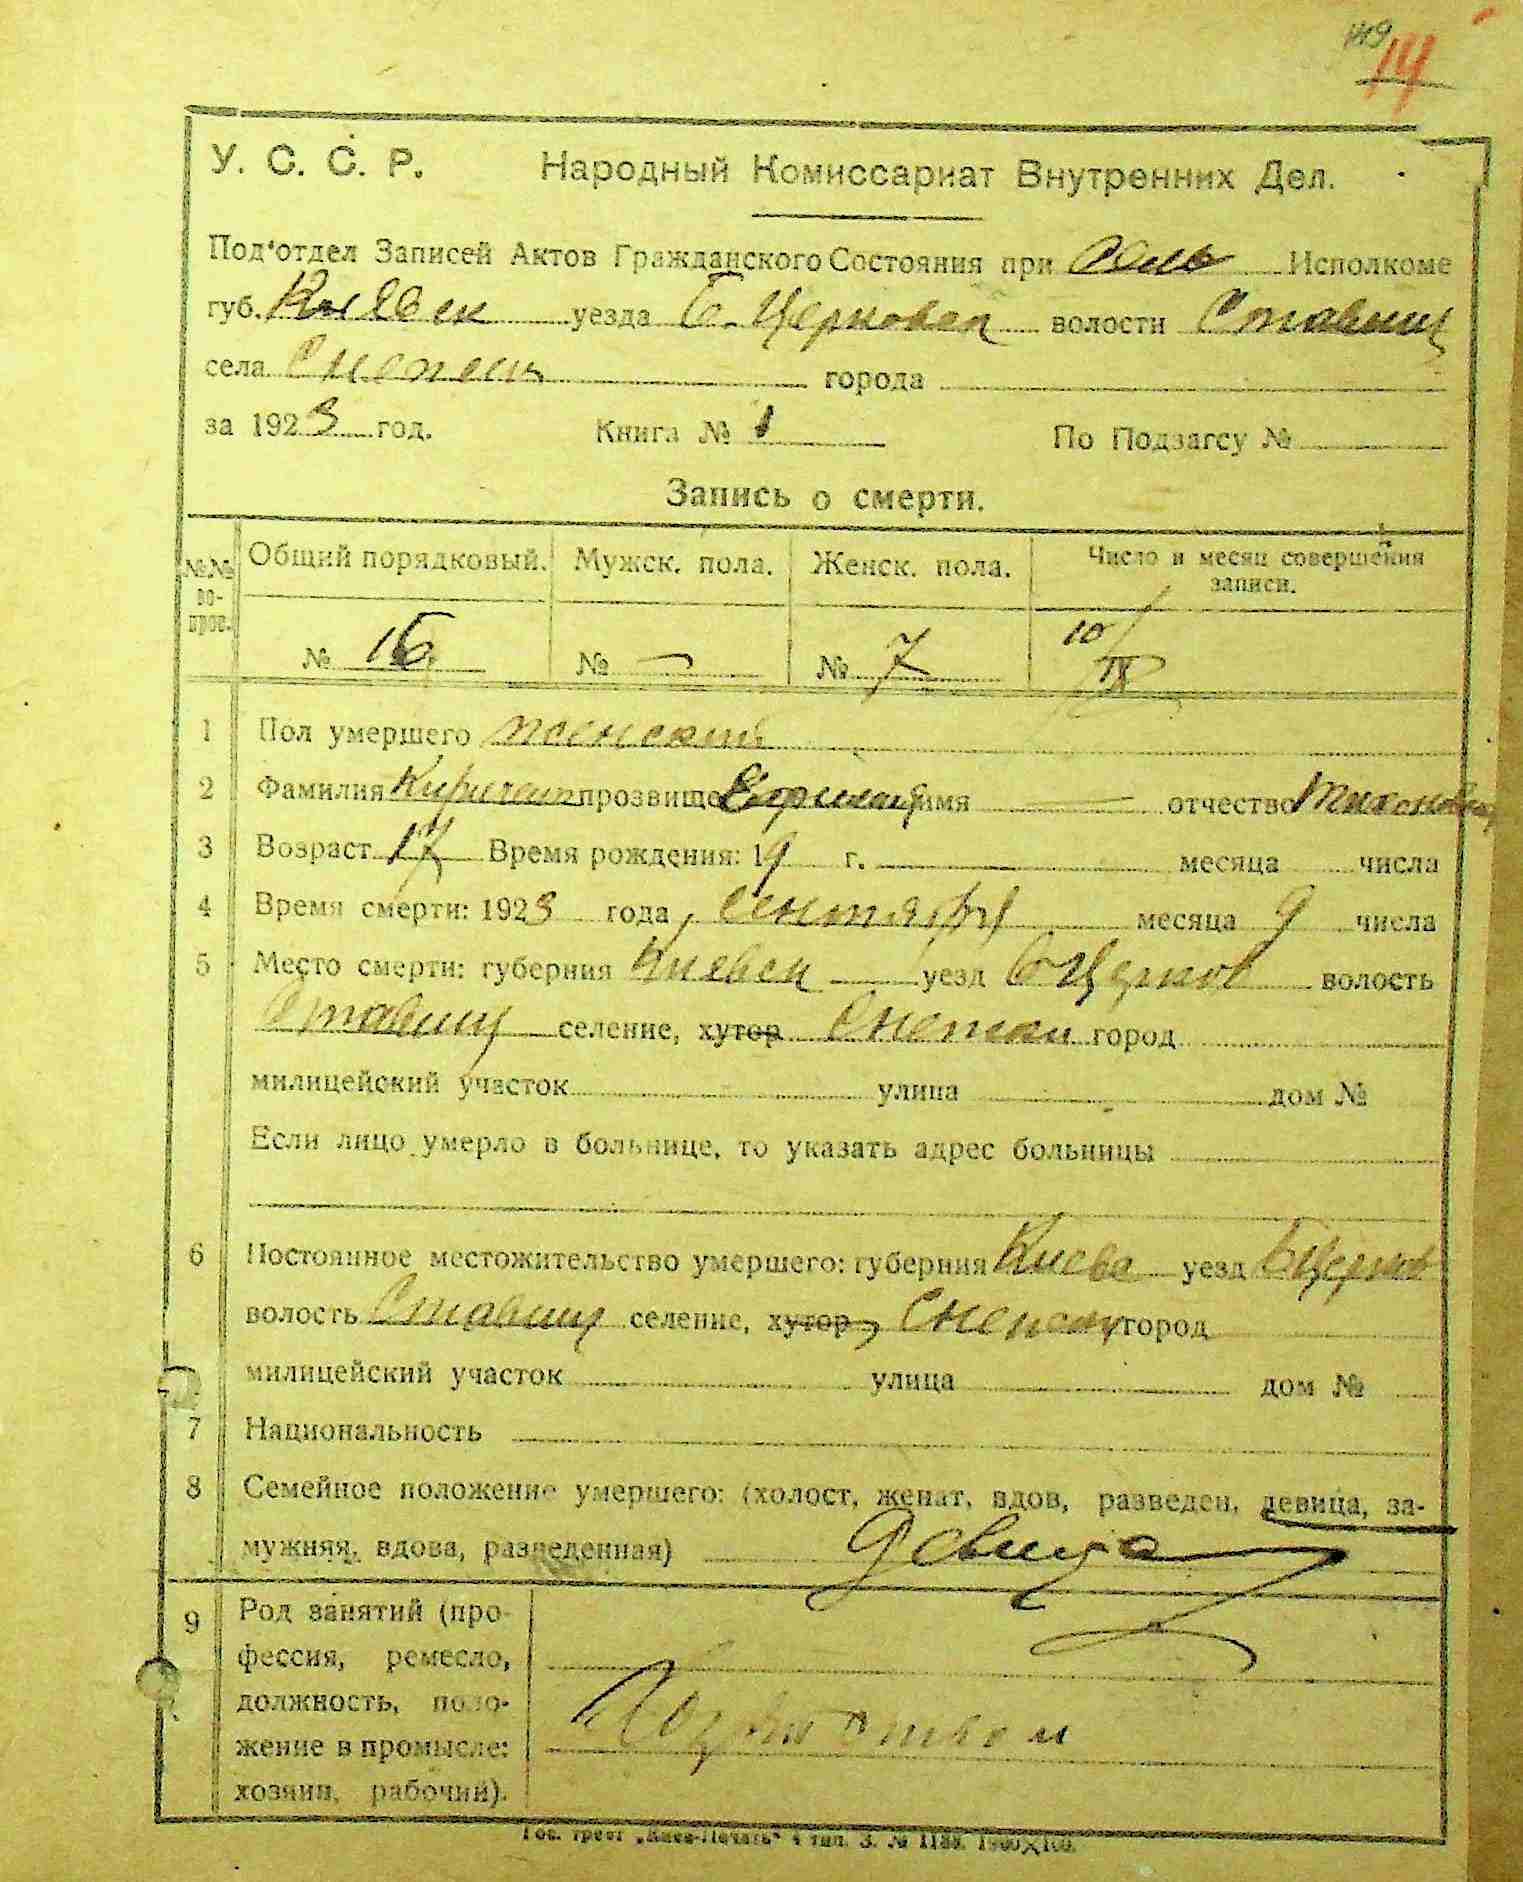 149
14
У. С. С. Р. Народный Комиссариат Внутренних Дел.
Под'отдел Записей Актов Гражданского Состояния при Исполкоме
губ. Киевск уезда Б. Церковск волости Ставищ
села города
за 1923 год. Книга № 1 По Подзагсу №
Запись о смерти.
№№ во-прос. Общий порядковый. Мужск. пола. Женск. пола. Число и месяц совершения записи.
№ 16 № — № 7 10/IX
1 Пол умершего женский
2 Фамилия прозвище имя — отчество Тихоновна
3 Возраст 17 Время рождения: 19 г. месяца числа
4 Время смерти: 1923 года, сентября месяца 9 числа
5 Место смерти: губерния Киевск уезд БЦерков волость
Ставищ селение, хутор город
милицейский участок улица дом №
Если лицо умерло в больнице, то указать адрес больницы
6 Постоянное местожительство умершего: губерния Киевс уезд БЦерков
волость Ставищ селение, хутор, город
милицейский участок улица дом №
7 Национальность
8 Семейное положение умершего: (холост, женат, вдов, разведен, девица, за-
мужняя, вдова, разведенная) девица
9 Род занятий (про-
фессия, ремесло,
должность, поло-
жение в промысле:
хозяин, рабочий).
Гос. трест „Киев-Печать" 4 тип. З. № 1188.